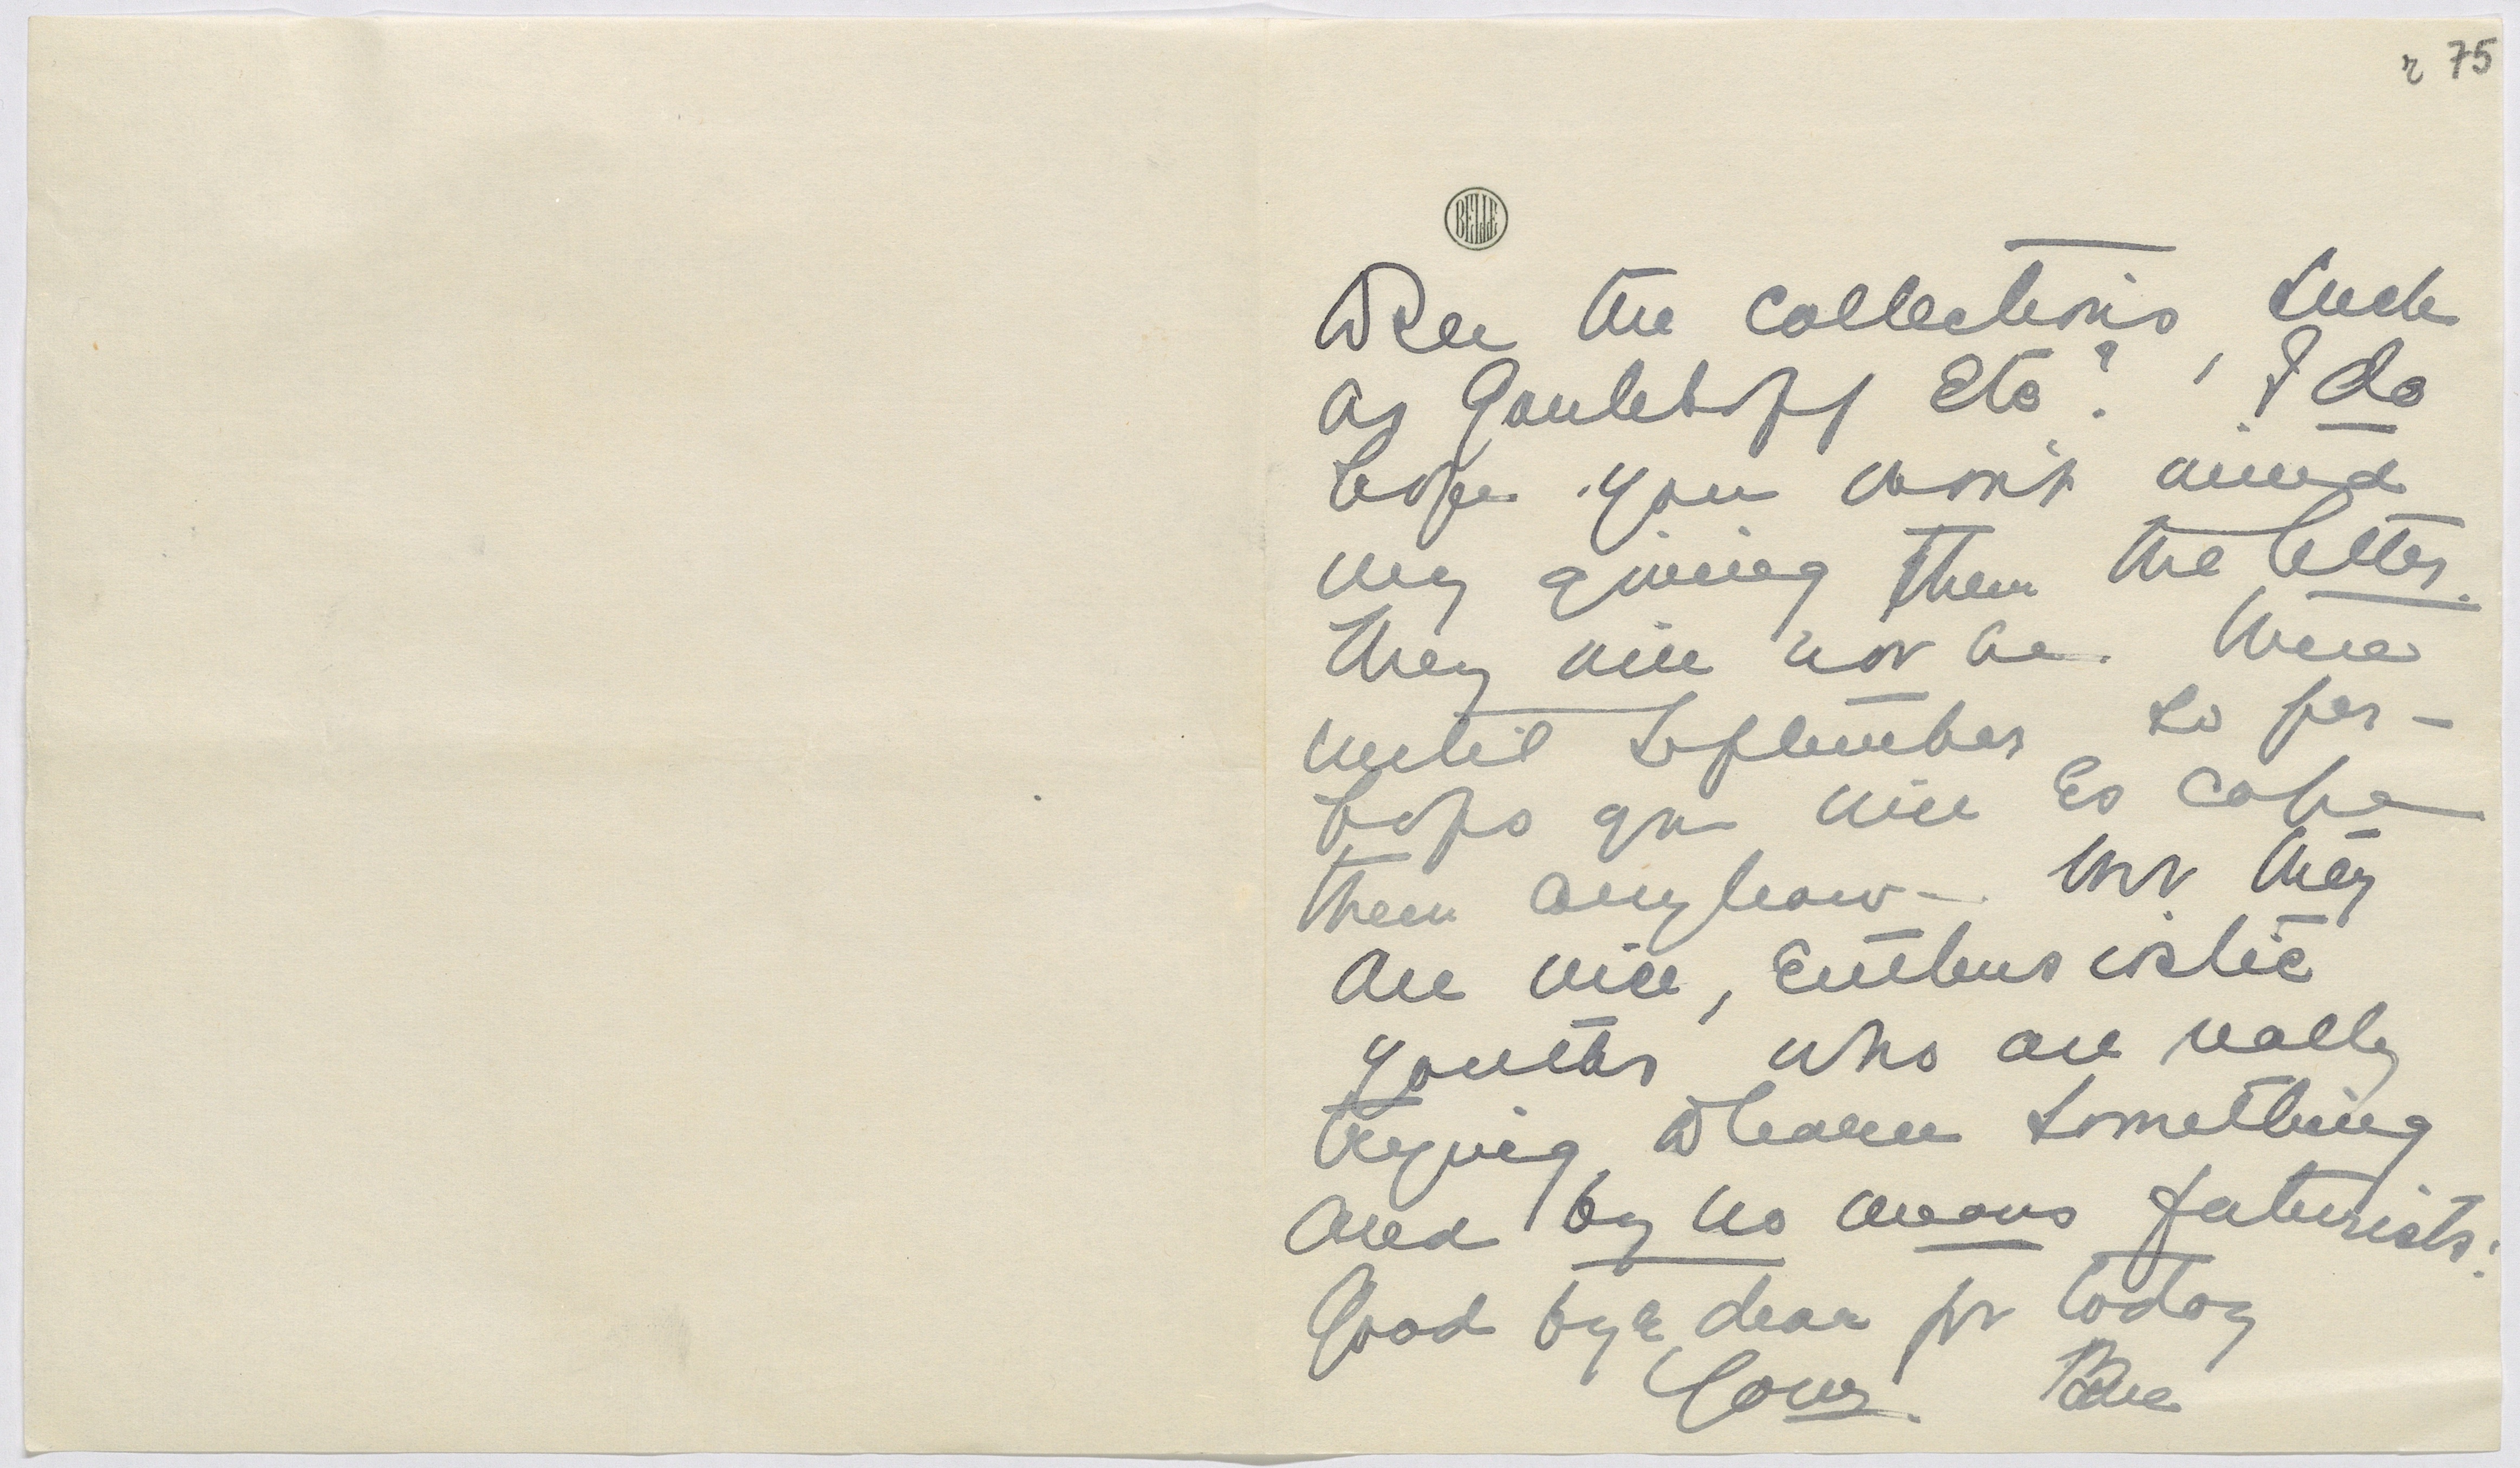 r 75
BELLE
to see the collections, such
as Goulekoff etc? I do
hope you won't mind
my giving them the letter.
They will not be there
until September so per-
haps you will escape
them anyhow — but they
are nice, enthusiastic
youths who are really
trying to learn something
and by no means futurists!
Good bye dear for today
Yours Belle